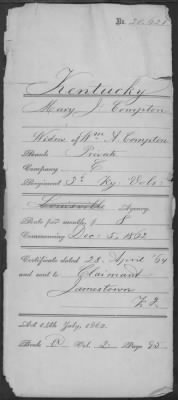 No. 20,921
Kentucky
Mary J. Compton
Widow of Wm A. Compton
Rank Private
Company C
Regiment 3d Ky. Vols.
Louisville Agency
Rate per month, $ 8
Commencing Dec. 5, 1862
Certificate dated 23 April '64
and sent to Claimant
Jamestown
Act 14th July, 1862.
Book D Vol. 2 Page